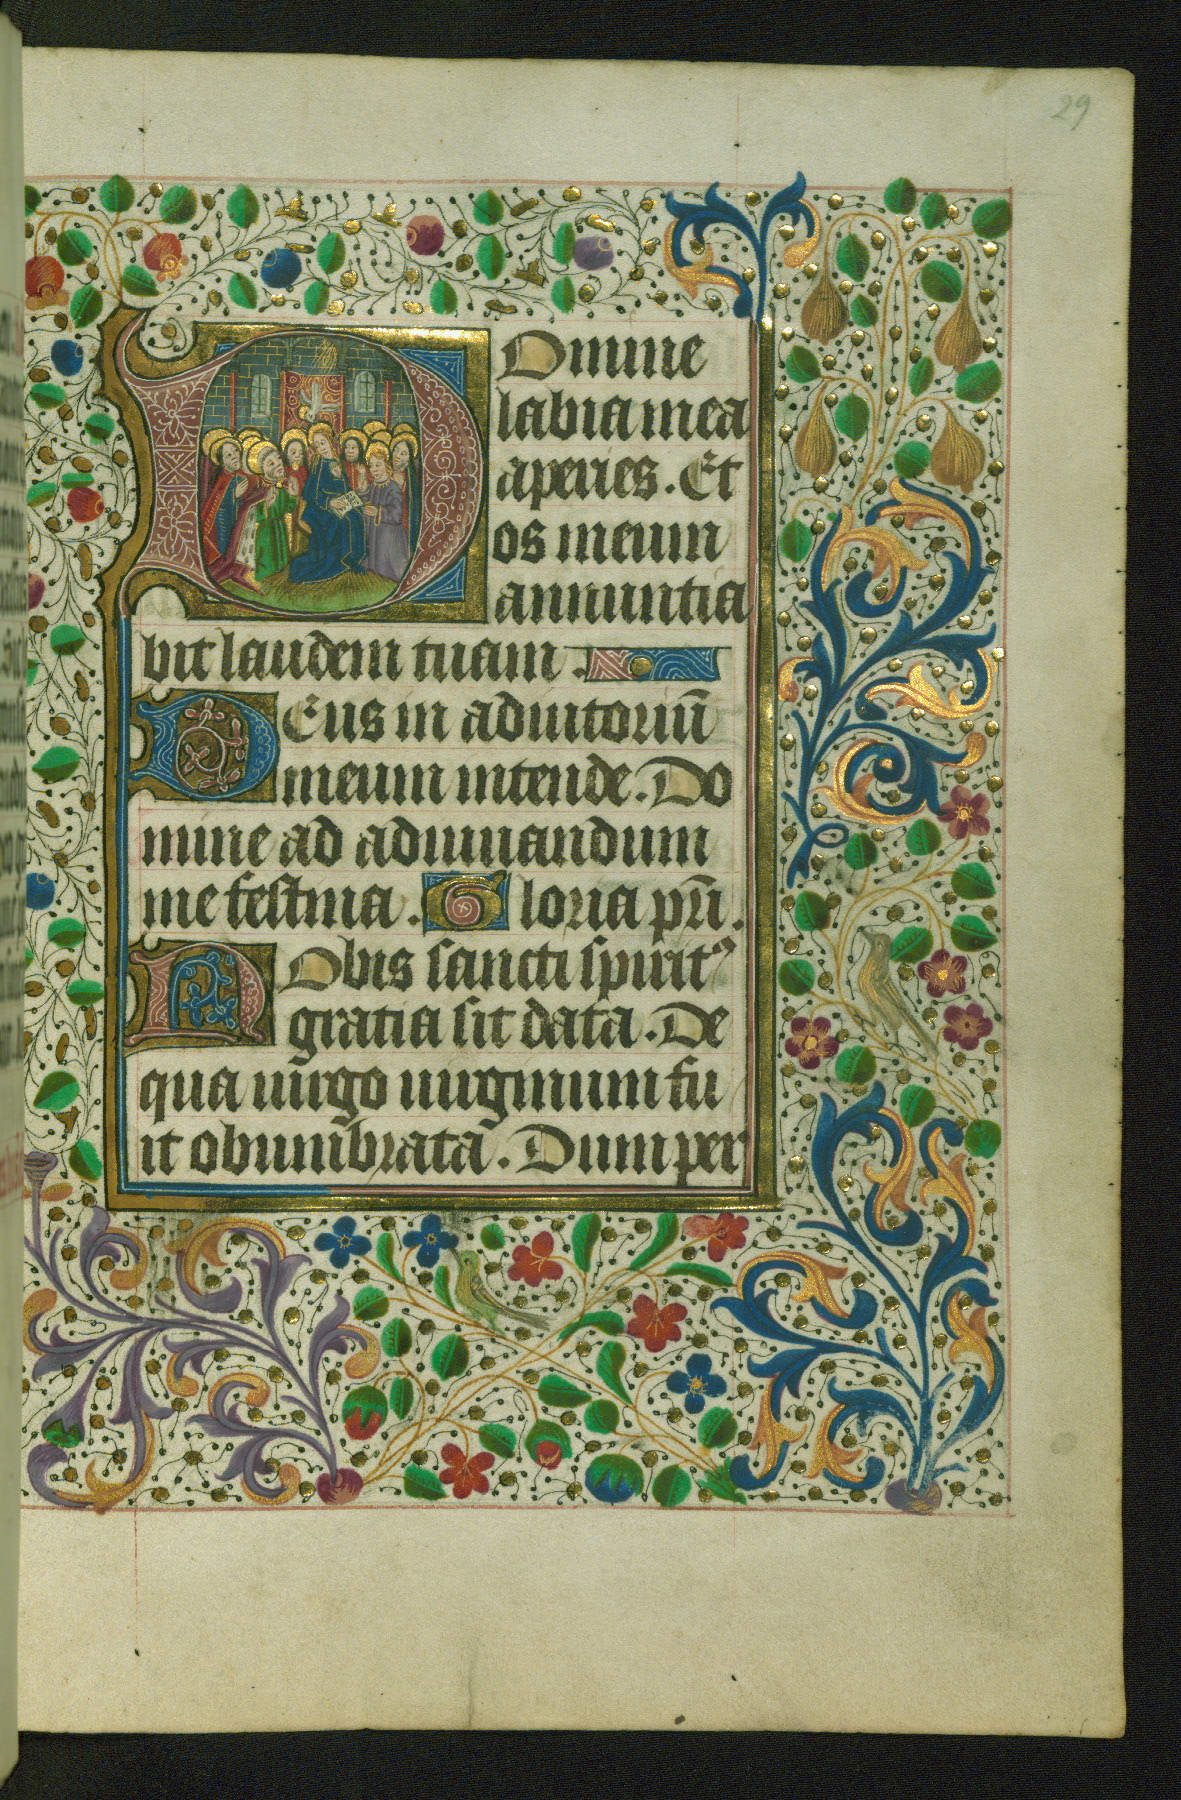 29
Domine
labia mea
aperies. Et
os meum
annuntia
bit laudem tuam.
Deus in adiutoriū
meum intende. Do
mine ad adiuuandum
me festina. Gloria pr̄i.
Nobis sancti spiritꝰ
gratia sit data. De
qua uirgo uirginum fu
it obumbrata. Dum per